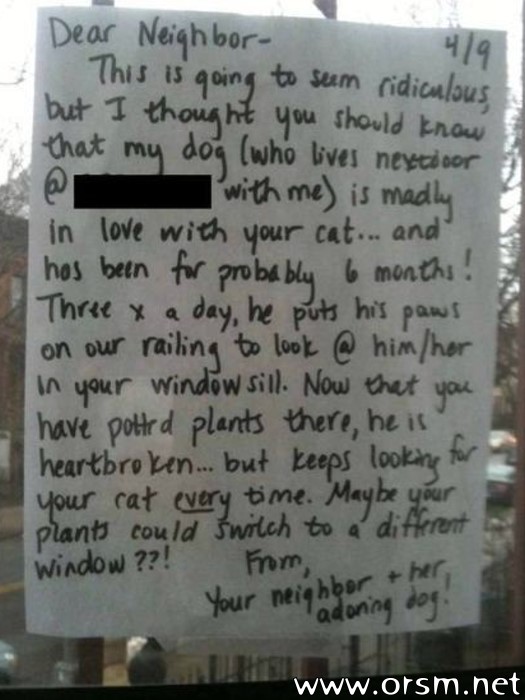 Dear Neighbor-
4/9
This is going to seem ridiculous,
but I thought you should know
that my dog (who lives nextdoor
@ with me) is madly
in love with your cat... and
has been for probably 6 months!
Three x a day, he puts his paws
on our railing to look @ him/her
in your windowsill. Now that you
have pottrd plants there, he is
heartbroken... but keeps looking for
your cat every time. Maybe your
plants could switch to a different
window??!
From,
Your neighbor + her
adoring dog!
www.orsm.net